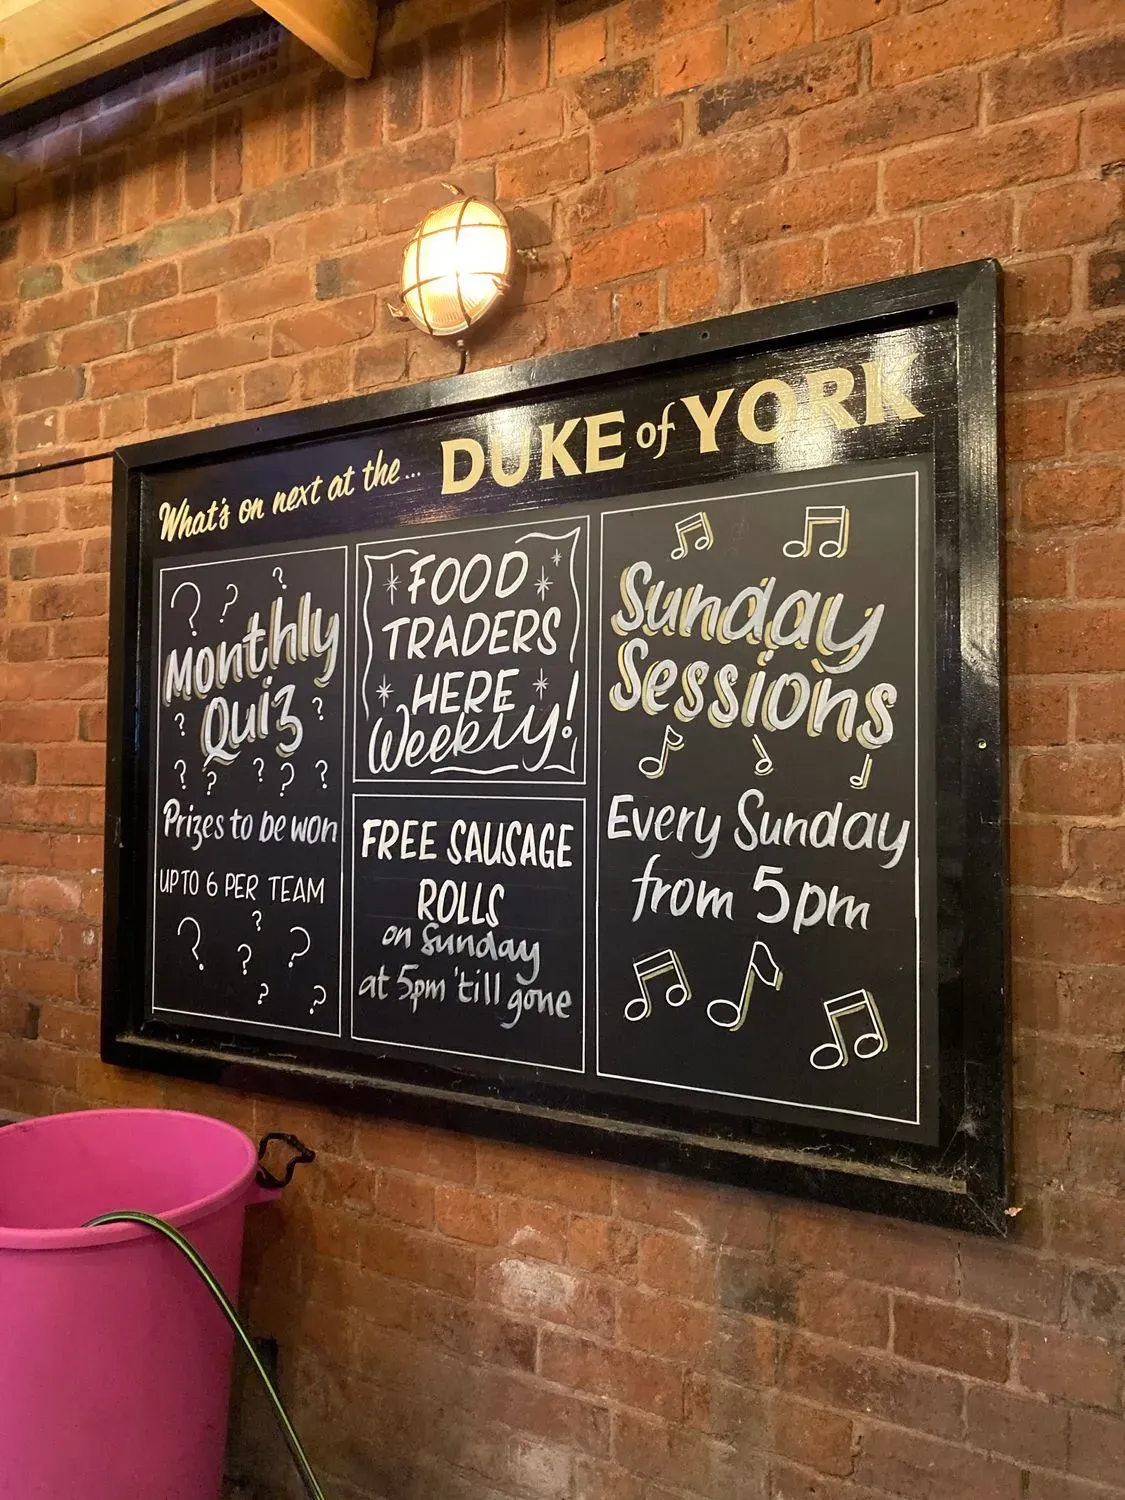 What's on next at the... DUKE of YORK
Monthly
Quiz
Prizes to be won
UP TO 6 PER TEAM
FOOD
TRADERS
HERE
Weekly!
FREE SAUSAGE
ROLLS
on Sunday
at 5pm 'till gone
Sunday
Sessions
Every Sunday
from 5pm